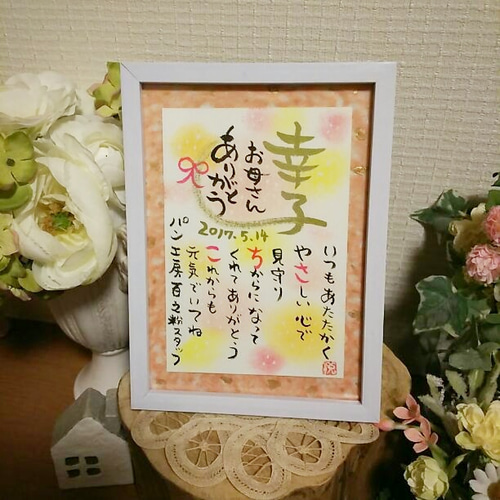 幸子
お母さん
ありがとう
2017.5.14
いつもあたたかく
やさしい心で
見守り
ちからになって
くれてありがとう
これからも
元気でいてね
パン工房百之粉スタッフ